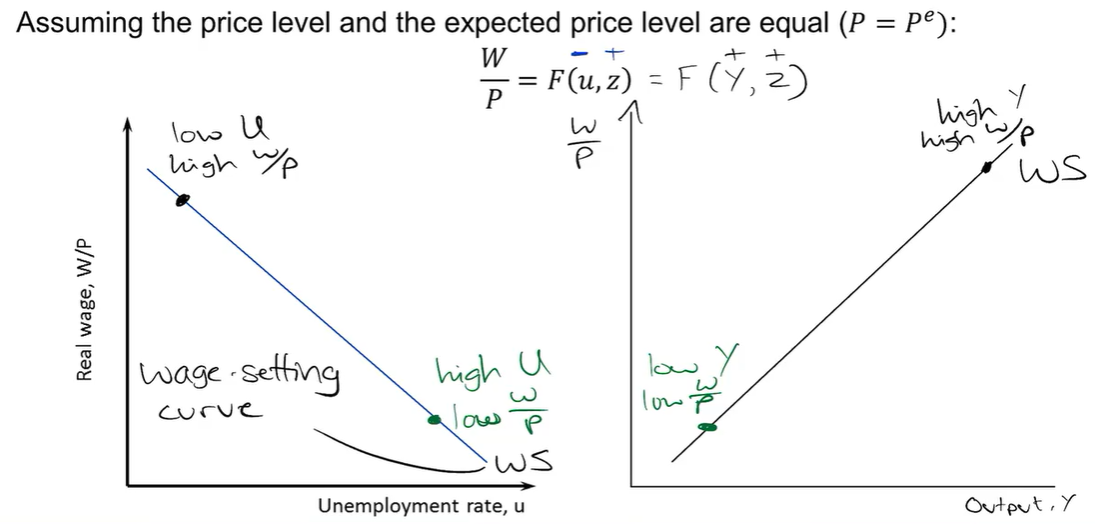 Assuming the price level and the expected price level are equal (P = Pᵉ):
− +
W/P = F(u, z) = F(Y, z)
+ +
low U
high W/P
Real wage, W/P
wage-setting
curve
high U
low W/P
WS
Unemployment rate, u
W/P
high Y
high W/P
WS
low Y
low W/P
Output, Y